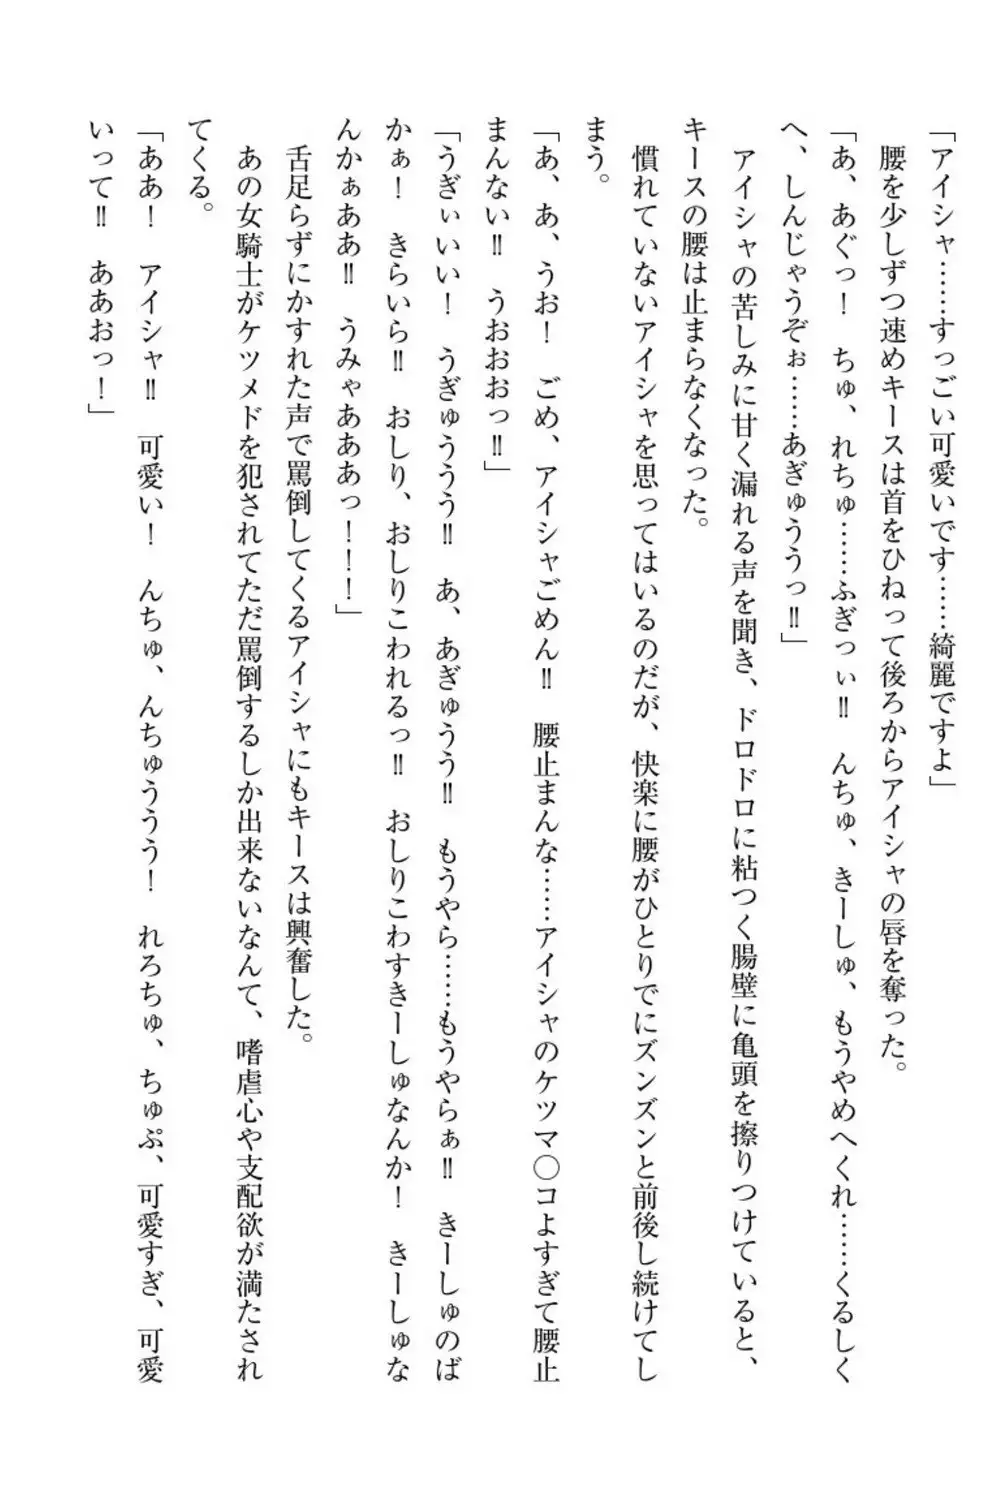 「アイシャ……すっごい可愛いです……綺麗ですよ」
腰を少しずつ速めキースは首をひねって後ろからアイシャの唇を奪った。
「あ、あぐっ！　ちゅ、れちゅ……ふぎっぃ‼　んちゅ、きーしゅ、もうやめへくれ……くるしく
へ、しんじゃうぞぉ……あぎゅううっ‼」
アイシャの苦しみに甘く漏れる声を聞き、ドロドロに粘つく腸壁に亀頭を擦りつけていると、
キースの腰は止まらなくなった。
慣れていないアイシャを思ってはいるのだが、快楽に腰がひとりでにズンズンと前後し続けてし
まう。
「あ、あ、うお！　ごめ、アイシャごめん‼　腰止まんな……アイシャのケツマ〇コよすぎて腰止
まんない‼　うおおおっ‼」
「うぎぃいい！　うぎゅううう‼　あ、あぎゅうう‼　もうやら……もうやらぁ‼　きーしゅのば
かぁ！　きらいら‼　おしり、おしりこわれるっ‼　おしりこわすきーしゅなんか！　きーしゅな
んかぁああ‼　うみゃあああっ！！！」
舌足らずにかすれた声で罵倒してくるアイシャにもキースは興奮した。
あの女騎士がケツメドを犯されてただ罵倒するしか出来ないなんて、嗜虐心や支配欲が満たされ
てくる。
「ああ！　アイシャ‼　可愛い！　んちゅ、んちゅううう！　れろちゅ、ちゅぷ、可愛すぎ、可愛
いって‼　ああおっ！」